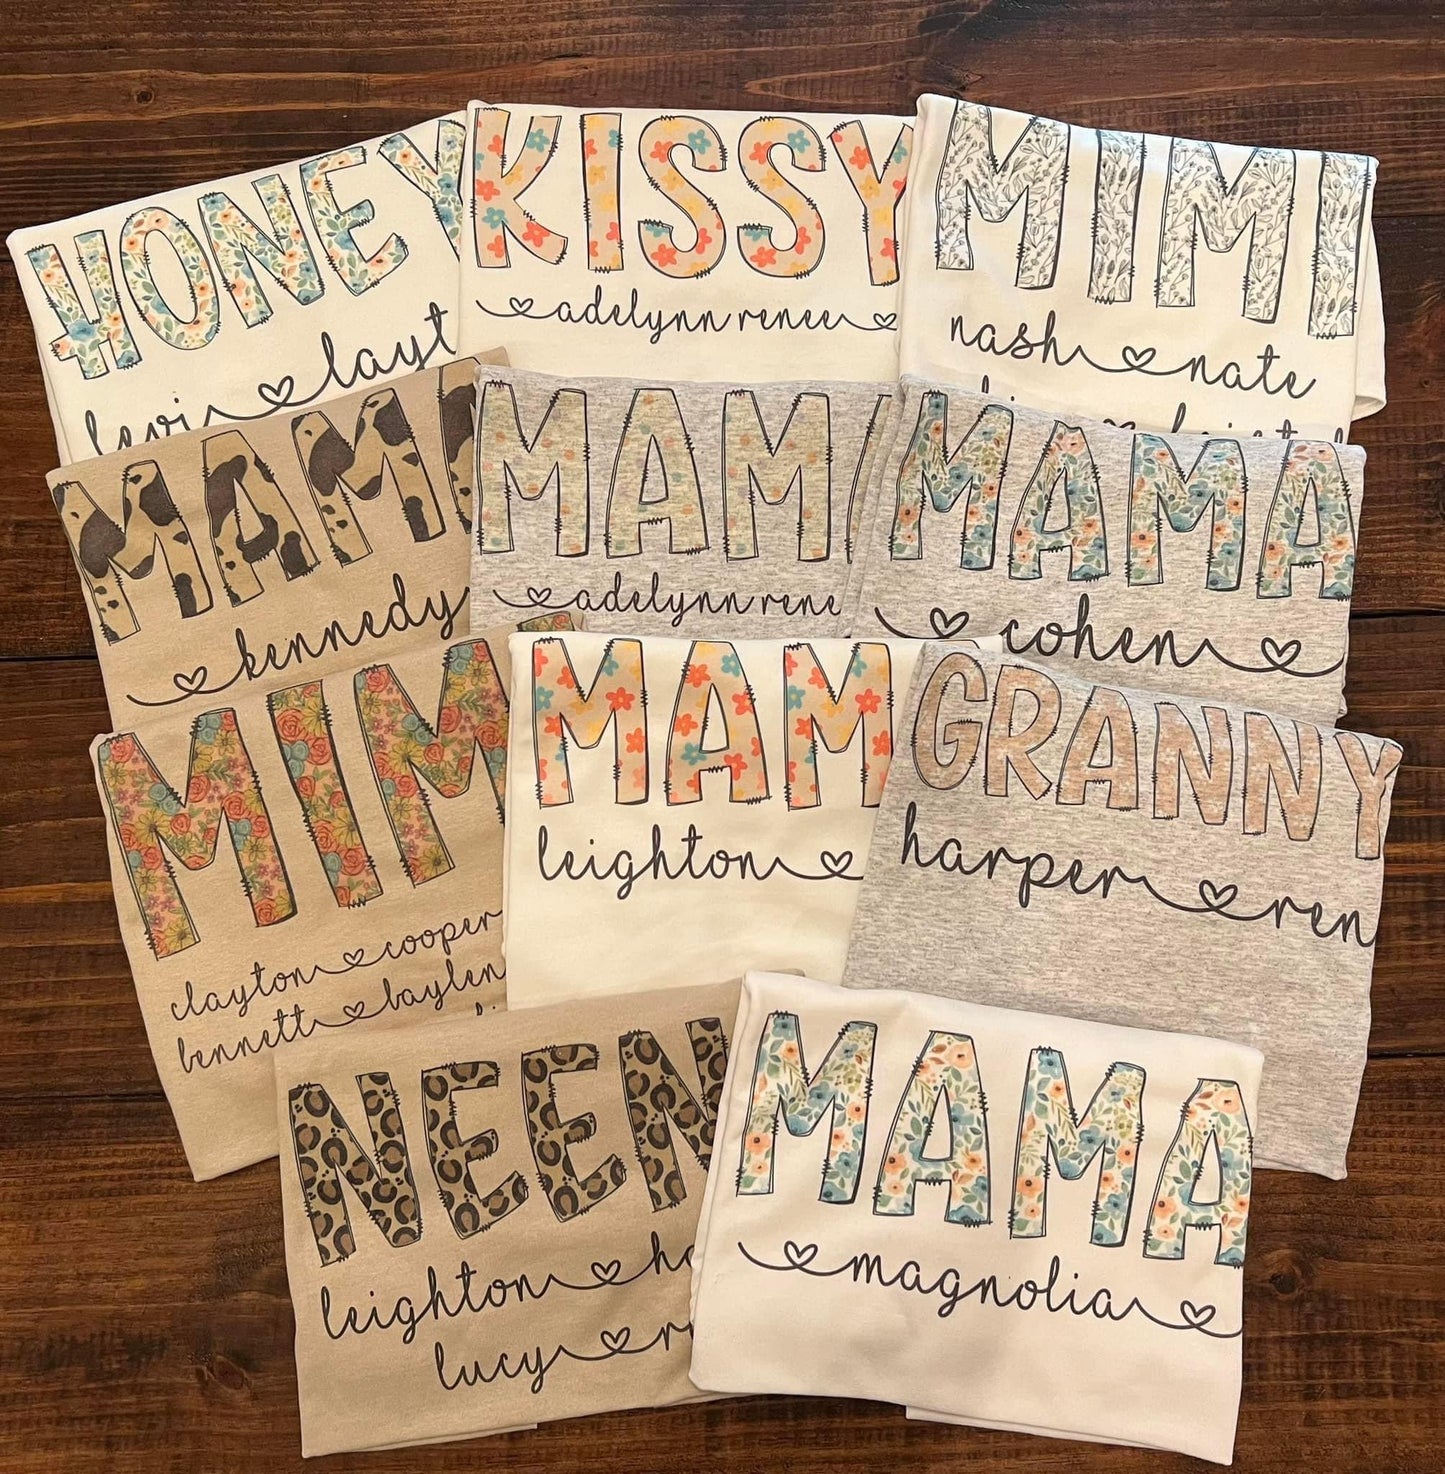 HONEY
levi layt
KISSY
adelynn renee
MIMI
nash nate
MAMA
kennedy
MAMA
adelynn rene
MAMA
cohen
MIM
clayton cooper
bennett baylen
MAMA
leighton
GRANNY
harper ren
NEEN
leighton ha
lucy
MAMA
magnolia